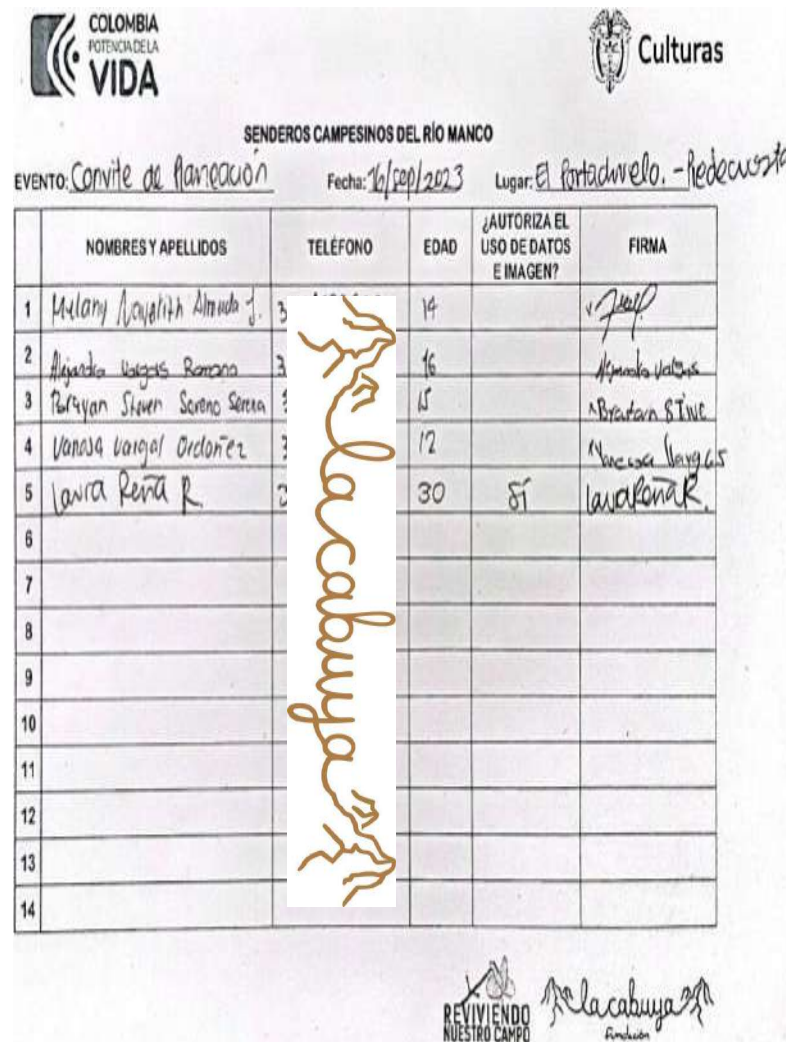 COLOMBIA
POTENCIA DE LA
VIDA
Culturas
SENDEROS CAMPESINOS DEL RÍO MANCO
EVENTO: Convite de Planeación Fecha: 16/sep/2023 Lugar: El Portachuelo. - Piedecuesta
NOMBRES Y APELLIDOS TELÉFONO EDAD ¿AUTORIZA EL USO DE DATOS E IMAGEN? FIRMA
1 Mylany Almeida J. 3 14
2 Alejandra Vargas Romano 3 16 Alejandra Vargas
3 Steven Sereno 3 15
4 Vanesa Vargas Ordoñez 3 12 Vanessa Vargas
5 Laura Peña R. 30 SÍ Laura Peña R.
6
7
8
9
10
11
12
13
14
la cabuya
REVIVIENDO
NUESTRO CAMPO
la cabuya
fundación